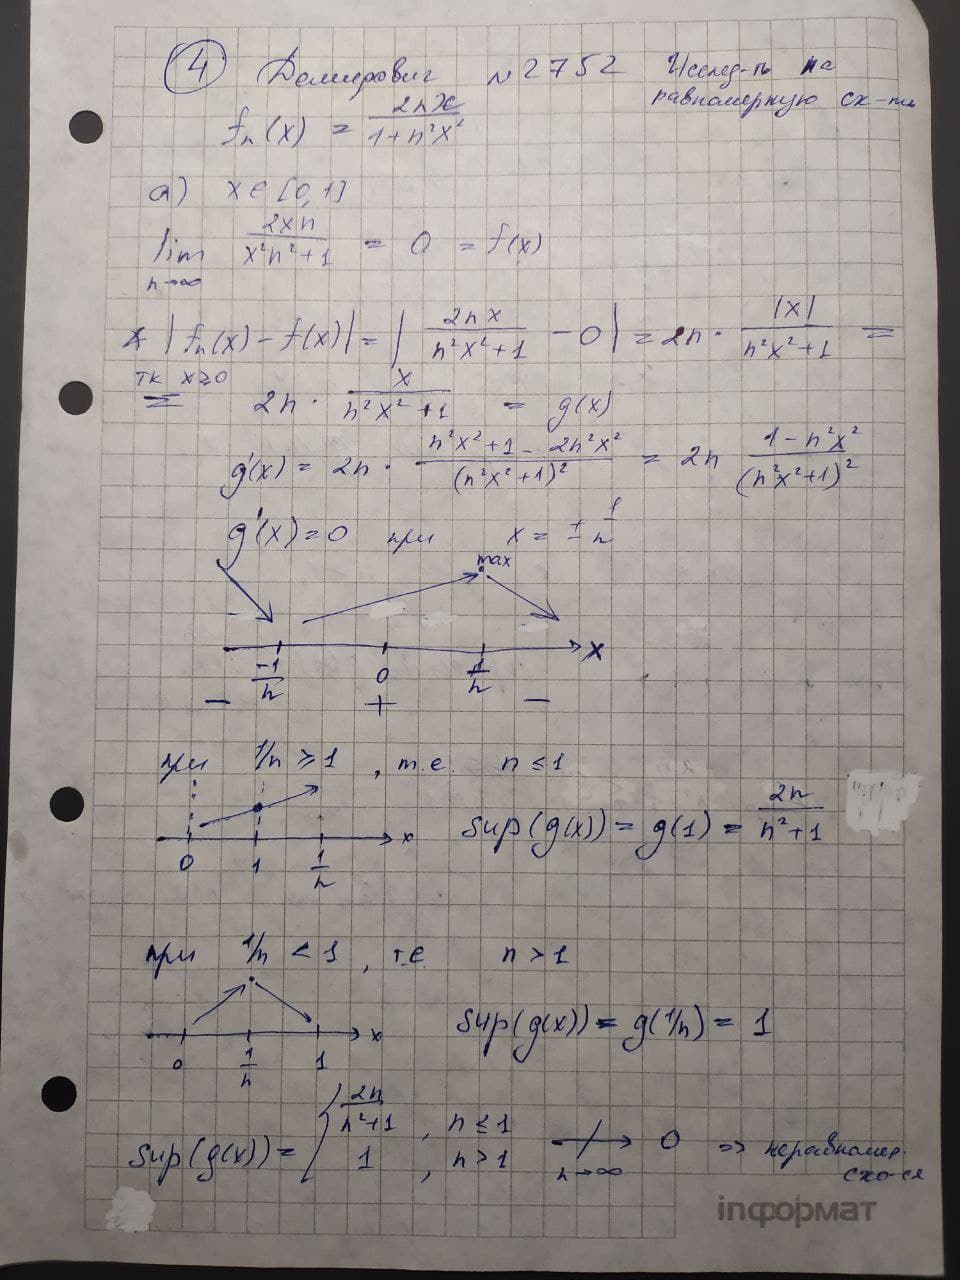 4 Демидович №2752 Исслед-ть на
равномерную сх-ть
fₙ(x) = 2nx/(1+n²x²)
а) x ∈ [0,1]
lim n→∞ 2xn/(x²n²+1) = 0 = f(x)
|fₙ(x) - f(x)| = |2nx/(n²x²+1) - 0| = 2n · |x|/(n²x²+1) =
тк x≥0
= 2n · x/(n²x²+1) = g(x)
g'(x) = 2n · (n²x²+1 - 2n²x²)/(n²x²+1)² = 2n (1-n²x²)/(n²x²+1)²
g'(x) = 0 при x = ± 1/n
max
-1/n 0 1/n x
- + -
при 1/n ≥ 1, т.е. n ≤ 1
0 1 1/n x
sup(g(x)) = g(1) = 2n/(n²+1)
при 1/n < 1, т.е. n > 1
0 1/n 1 x
sup(g(x)) = g(1/n) = 1
sup(g(x)) = { 2n/(n²+1), n ≤ 1
1, n > 1 ↛ n→∞ 0 => неравномер.
сх-ся
inформат